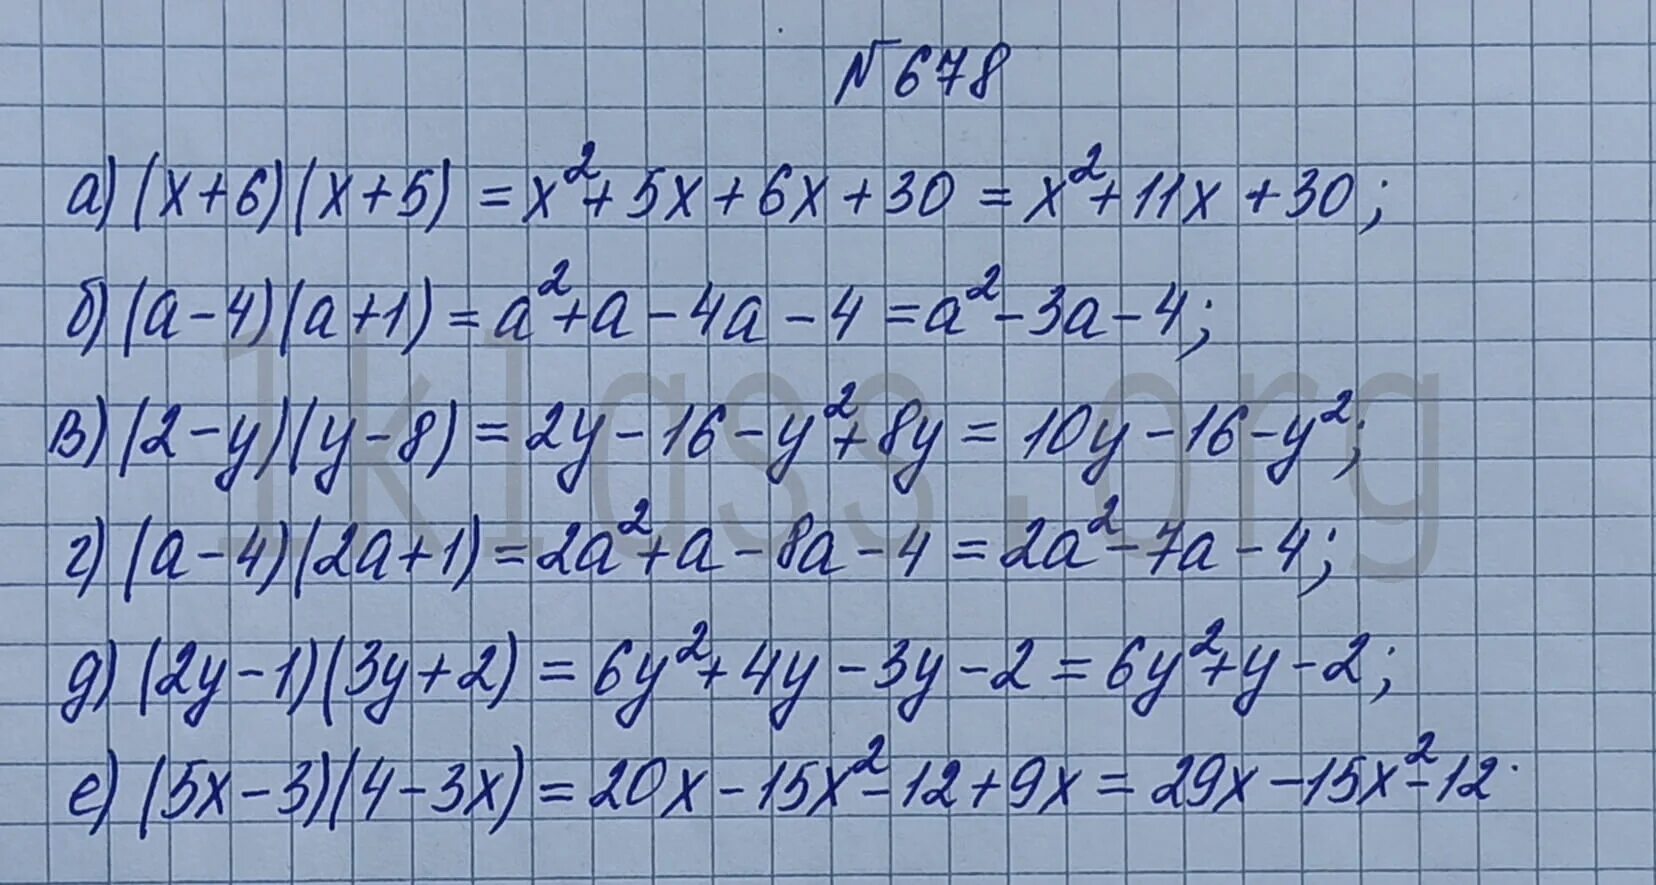 №678
а) (x+6)(x+5) = x²+5x+6x+30 = x²+11x+30;
б) (a-4)(a+1) = a²+a-4a-4 = a²-3a-4;
в) (2-y)(y-8) = 2y-16-y²+8y = 10y-16-y²;
г) (a-4)(2a+1) = 2a²+a-8a-4 = 2a²-7a-4;
д) (2y-1)(3y+2) = 6y²+4y-3y-2 = 6y²+y-2;
е) (5x-3)(4-3x) = 20x-15x²-12+9x = 29x-15x²-12.
1klass.org